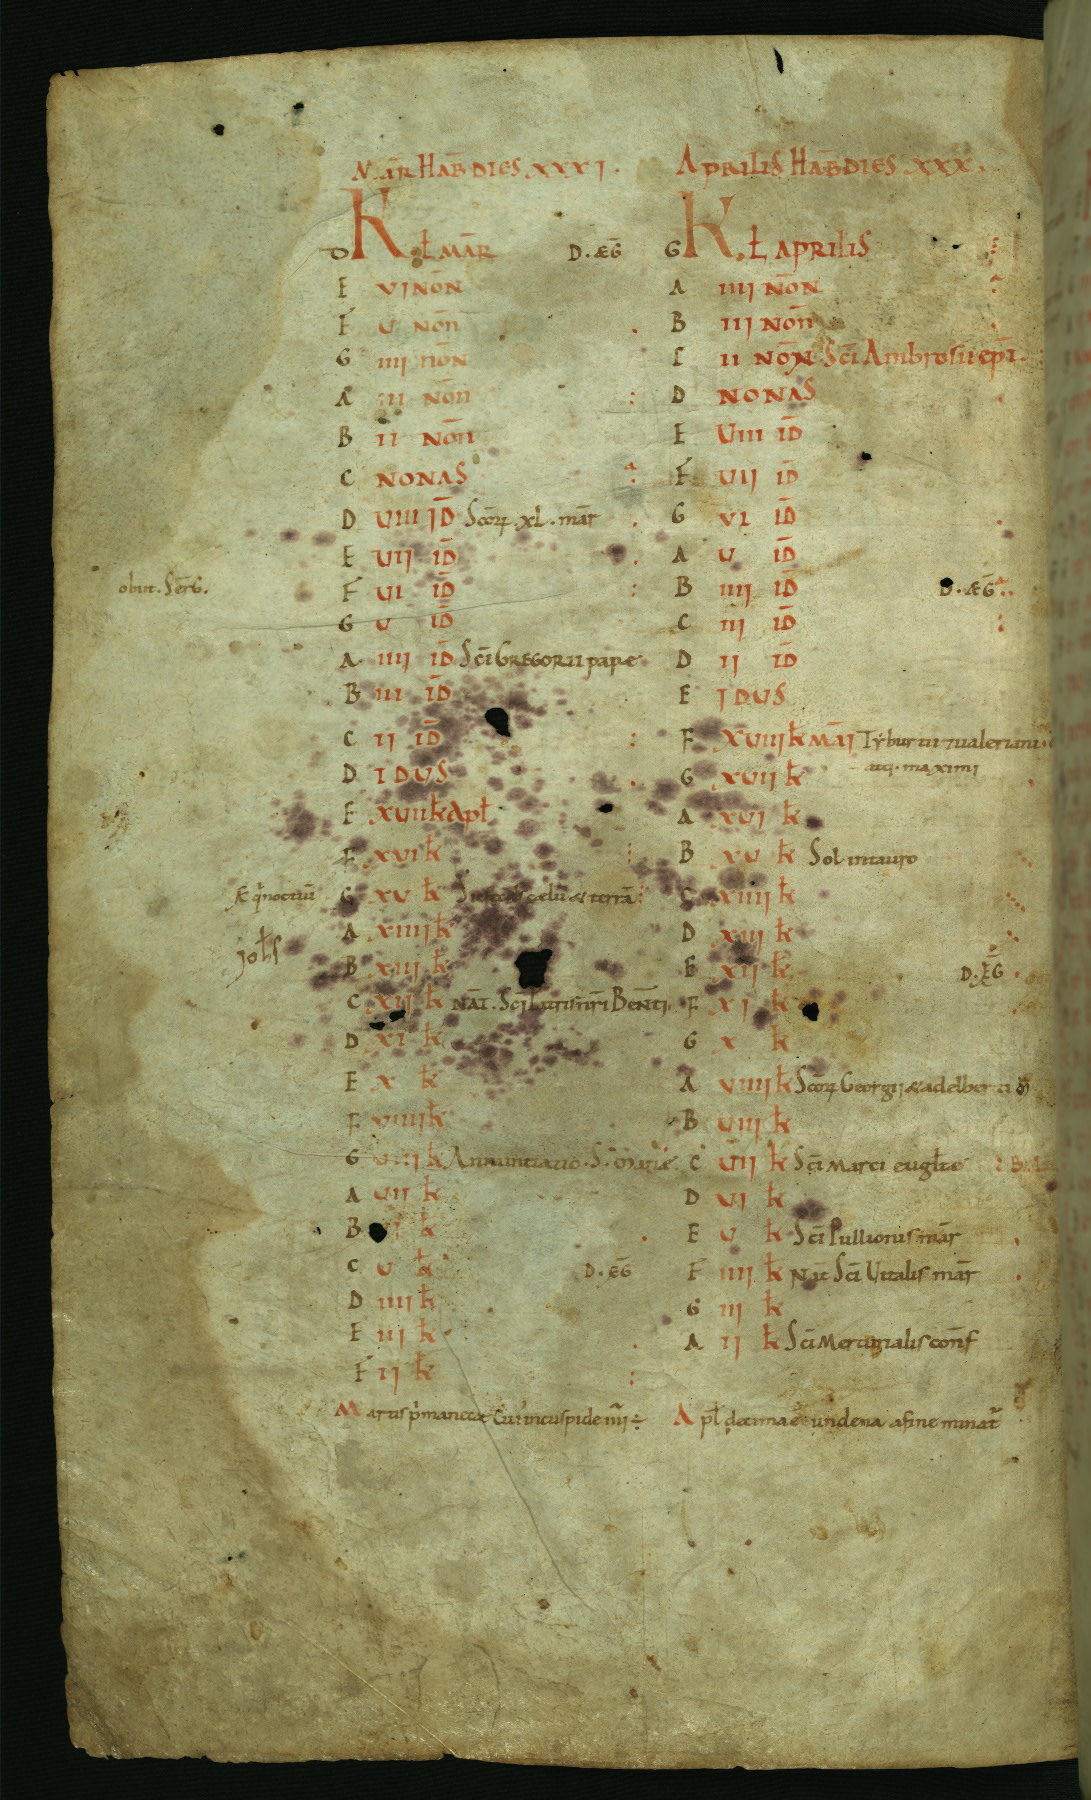 MAR̄ HAB̄ DIES XXXI.
D KŁ MAR̄ D. ÆḠ
E VI NOÑ
F V NOÑ
G IIII NOÑ
A III NOÑ
B II NOÑ
C NONAS
D VIIII ID̄ Scōꝝ. XL. mār
E VII ID̄
obiit. Serḡ. F VI ID̄
G V ID̄
A IIII ID̄ Sc̄i GREGORII pape
B III ID̄
C II ID̄
D IDUS
E XVII k̄ Apł
F XVI k̄
G XV k̄ celū & terrā
A XIIII k̄
B XIII k̄
C XII k̄ NAT̄. Sc̄i Beñ
D XI k̄
E X k̄
F VIIII k̄
G VIII k̄ Annuntiatio. S. Marie
A VII k̄
B VI k̄
C V k̄ D. ęḠ
D IIII k̄
E III k̄
F II k̄
Martis incuspide
APRILIS HAB̄ DIES XXX.
G KŁ APRILIS
A IIII NOÑ
B III NOÑ
C II NOÑ Sc̄i Ambrosii ep̄i.
D NONAS
E VIII ID̄
F VII ID̄
G VI ID̄
A V ID̄
B IIII ID̄ D. ÆḠ
C III ID̄
D II ID̄
E IDUS
F XVIII k̄ MAĪI Tyburtii 7 ualeriani.
atq. maximi
G XVII k̄
A XVI k̄
B XV k̄ Sol in tauro
C XIIII k̄
D XIII k̄
E XII k̄ D. ĘḠ
F XI k̄
G X k̄
A VIIII k̄ Scōꝝ Georgii & adelberti
B VIII k̄
C VII k̄ Sc̄i Marci eugł̄te
D VI k̄
E V k̄ Sc̄i Pullionis mār
F IIII k̄ Nat̄ Sc̄i Vitalis mār
G III k̄
A II k̄ Sc̄i Mercurialis conf̄
Apł decima & undena a fine minat̄